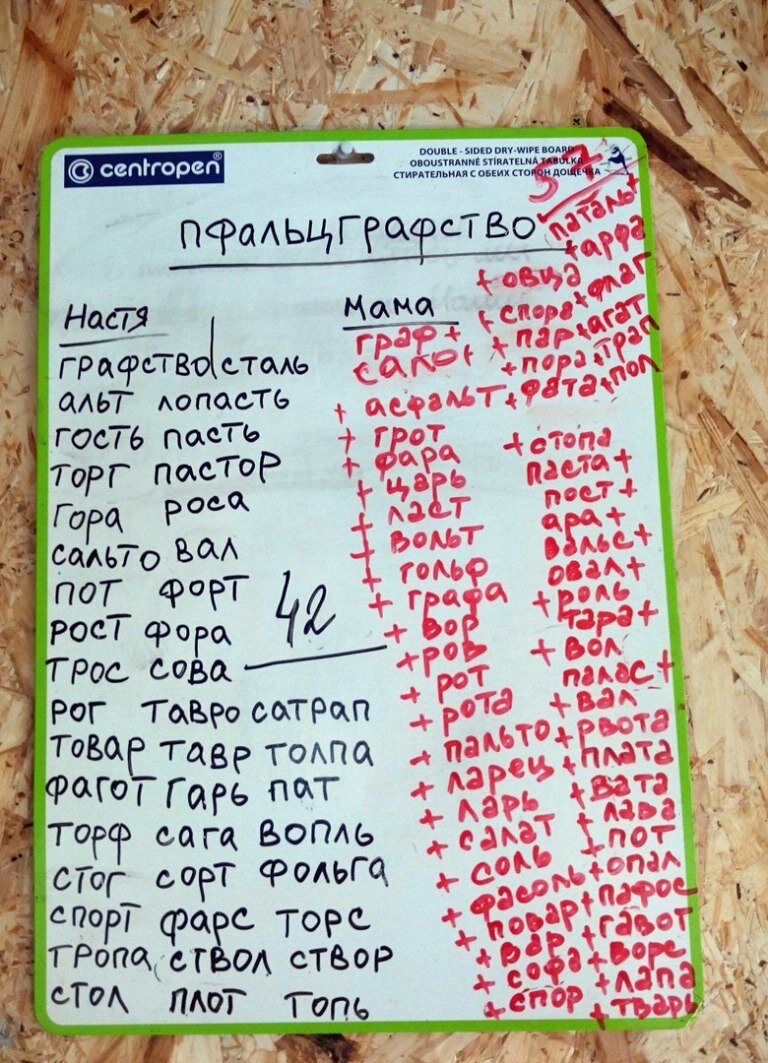 centropen
DOUBLE - SIDED DRY-WIPE BOARD
OBOUSTRANNÉ STÍRATELNÁ TABULKA
СТИРАТЕЛЬНАЯ С ОБЕИХ СТОРОН ДОЩЕЧКА
57
пфальцграфство
Настя
графство сталь
альт лопасть
гость пасть
торг пастор
гора роса
сальто вал
пот форт
рост фора
трос сова
рог тавро сатрап
товар тавр толпа
фагот гарь пат
торф сага вопль
стог сорт фольга
спорт фарс торс
тропа, ствол створ
стол плот топь
42
Мама
граф +
сало +
+ асфальт
+ грот
+ фара
+ царь
+ ласт
+ вольт
+ гольф
+ графа
+ вор
+ ров
+ рот
+ рота
+ пальто
+ ларец
+ ларь
+ салат
+ соль
+ фасоль
+ повар
+ вар
+ софа
+ спор
паталь +
+ арфа
+ овца
+ спора + флаг
+ пар + агат
+ пора + трап
+ фата + пол
+ стопа
паста +
пост +
ара +
вальс +
овал +
+ роль
тара +
+ вол
палас +
+ вал
+ рвота
+ плата
+ вата
+ лава
+ пот
+ опал
+ пафос
+ гавот
+ ворс
+ лапа
+ тварь